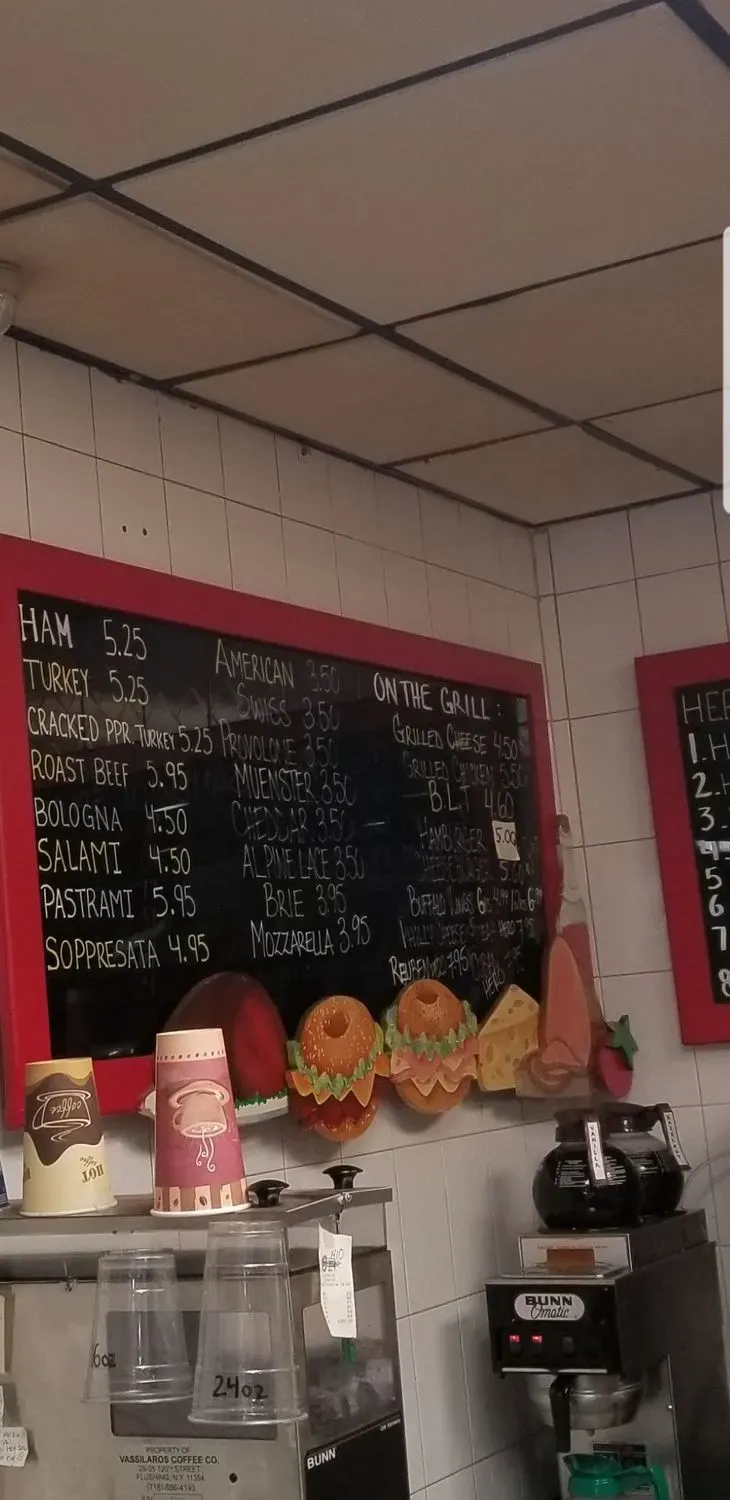 HAM 5.25
TURKEY 5.25
CRACKED PPR. TURKEY 5.25
ROAST BEEF 5.95
BOLOGNA 4.50
SALAMI 4.50
PASTRAMI 5.95
SOPPRESATA 4.95
AMERICAN 3.50
SWISS 3.50
PROVOLONE 3.50
MUENSTER 3.50
CHEDDAR 3.50
ALPINE LACE 3.50
BRIE 3.95
MOZZARELLA 3.95
ON THE GRILL :
GRILLED CHEESE 4.50
GRILLED CHICKEN 5.50
B.L.T 4.60
HAMBURGER 5.00
CHEESEBURGER 5.00
BUFFALO WINGS
REUBEN 7.95
HERO
1. H
2.
3.
4
5
6
7
8
coffee
HOT
VANILLA
6oz
24oz
BUNN
Omatic
PROPERTY OF
VASSILAROS COFFEE CO.
29-05 120TH STREET
FLUSHING, N.Y. 11354
(718)-886-4140
BUNN